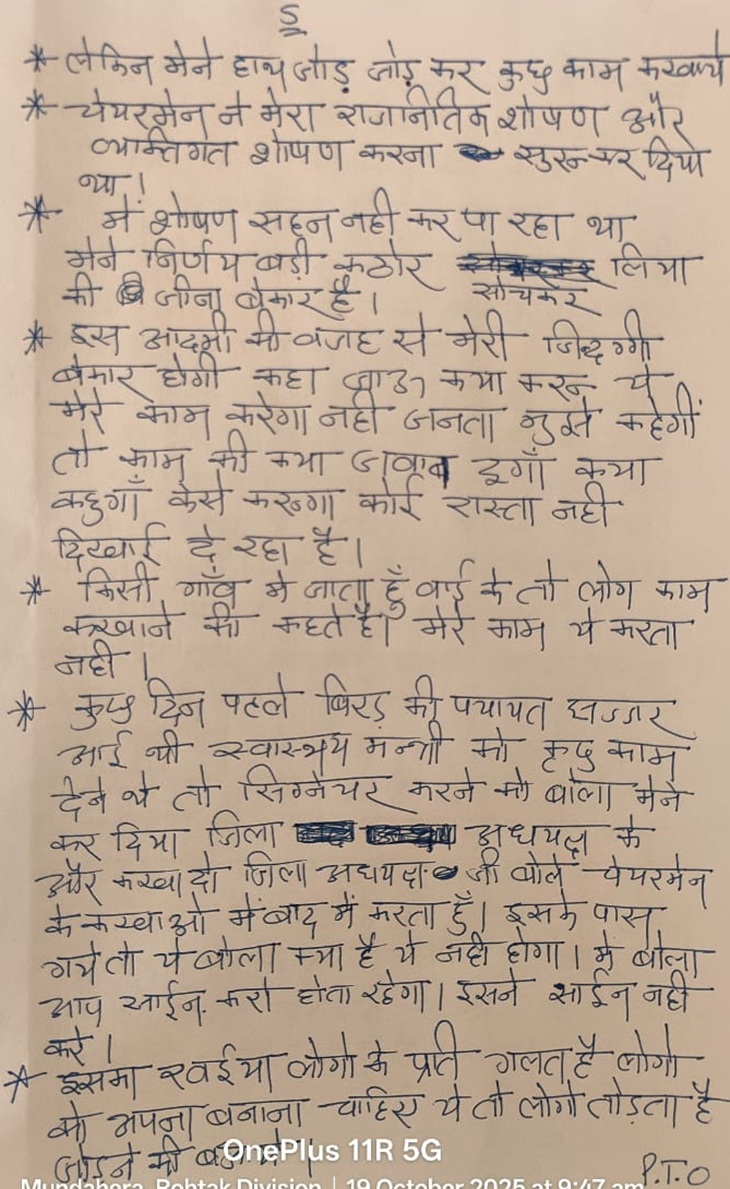 5
* लेकिन मेने हाथ जोड़ जोड़ कर कुछ काम करवाये
* चेयरमेन ने मेरा राजनितिक शोषण और
व्यक्तिगत शोषण करना सुरू कर दिया
था।
* में शोषण सहन नही कर पा रहा था
मेने निर्णय बड़ी कठोर लिया
सोचकर
की जीना बेकार है।
* इस आदमी की वजह से मेरी जिंदगी
बेकार होगी कहा जाऊ क्या करू ये
मेरे काम करेगा नही जनता मुझे कहेगीं
तो काम की क्या जवाब दूगाँ क्या
कहुगाँ केसे करूगा कोई रास्ता नही
दिखाई दे रहा है।
* किसी गाँव मे जाता हूँ वार्ड के तो लोग काम
करवाने की कहते है। मेरे काम ये करता
नही।
* कुछ दिन पहले बिरड़ की पंचायत झज्जर
आई थी स्वास्थय मन्त्री को कुछ काम
देने थे तो सिग्नेचर करने को बोला मेने
कर दिया जिला अध्यक्ष के
और करवा दो जिला अध्यक्ष जी बोले चेयरमेन
के करवाओ में बाद में करता हूँ। इसके पास
गये तो ये बोला क्या है ये नही होगा। मे बोला
आप साईन करो होता रहेगा। इसने साईन नही
करे।
* इसका रवईया लोगो के प्रति गलत है लोगो
को अपना बनाना चाहिए ये तो लोगो तोड़ता है
जोडने की
P.T.O
OnePlus 11R 5G
Mundahera, Rohtak Division | 19 October 2025 at 9:47 am